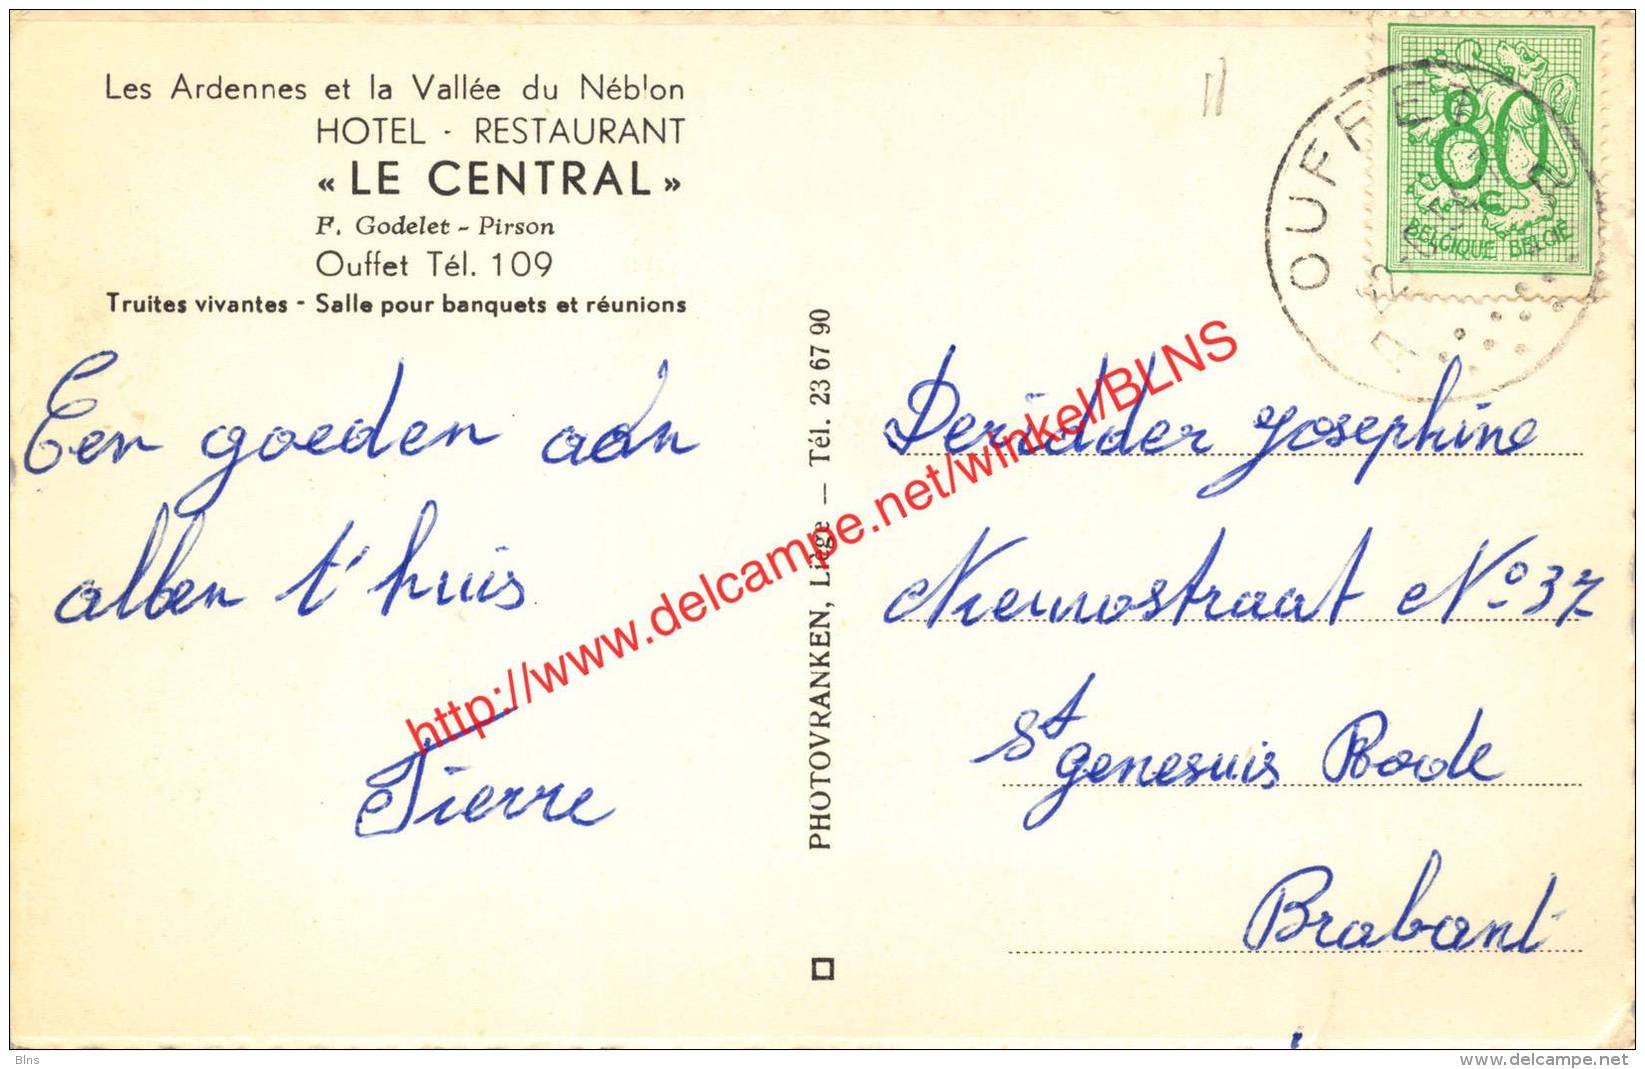 Les Ardennes et la Vallée du Néblon
HOTEL - RESTAURANT
« LE CENTRAL »
F. Godelet - Pirson
Ouffet Tél. 109
Truites vivantes - Salle pour banquets et réunions
Een goeden aan
allen t'huis
Pierre
PHOTOVRANKEN, Liège — Tél. 23 67 90
OUFFET
80
BELGIQUE BELGIË
Deridder Josephine
Nieuwstraat No 37
St genesuis Rode
Brabant
http://www.delcampe.net/winkel/BLNS
Blns
www.delcampe.net